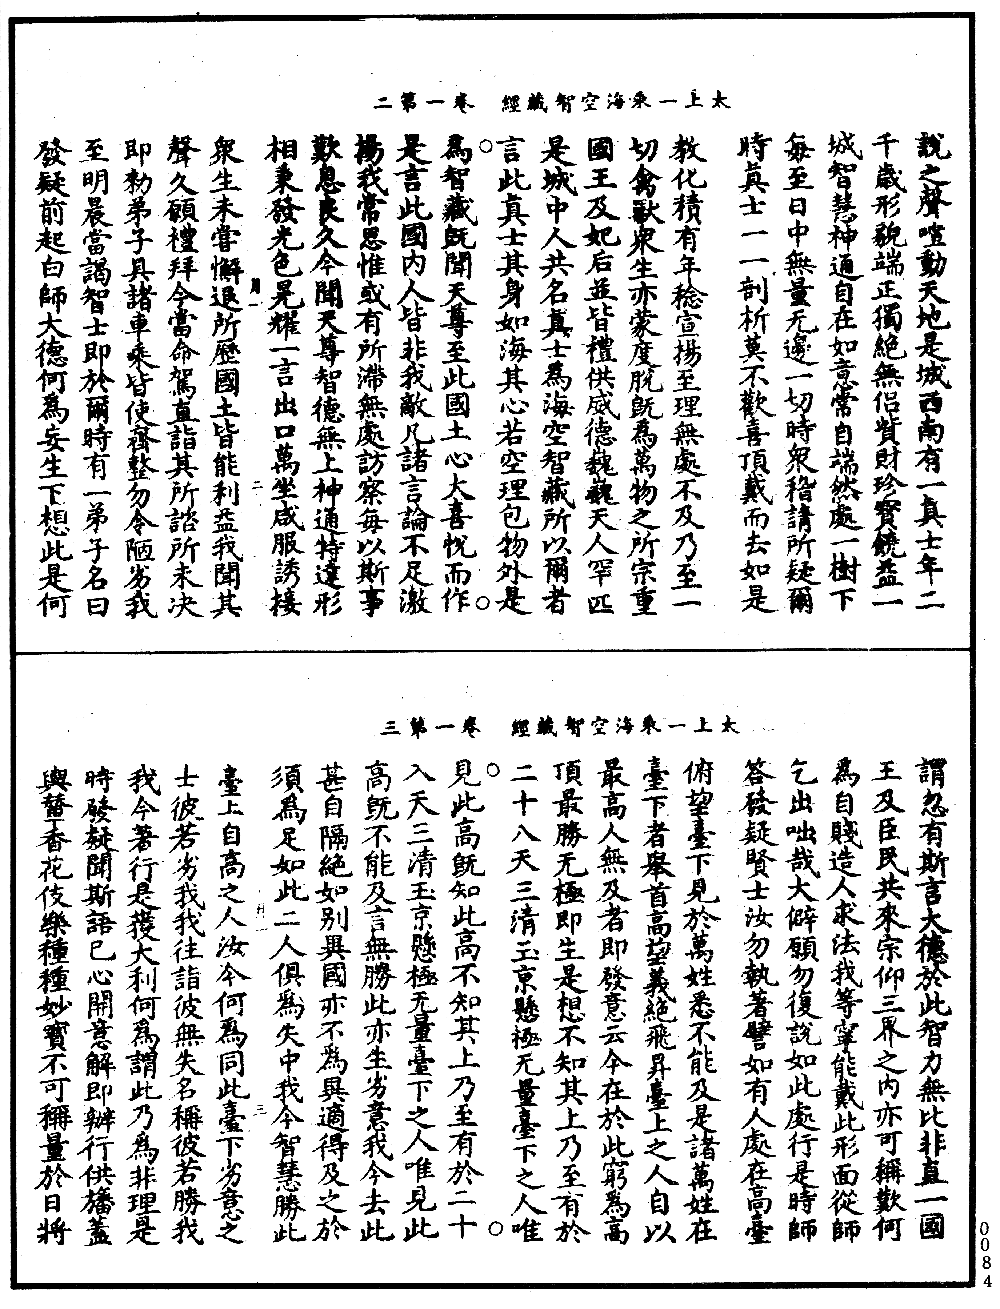 太上一乘海空智藏經　卷一　第二
說之聲喧動天地是城西南有一真士年二
千歲形貌端正獨絕無侶貲財珍寶饒益一
城智慧神通自在如意常自端然處一樹下
每至日中無量无邊一切時眾稽請所疑爾
時真士一一剖析莫不歡喜頂戴而去如是
教化積有年稔宣揚至理無處不及乃至一
切禽獸眾生亦蒙度脫旣為萬物之所宗重
國王及妃后並皆禮供威德巍巍天人罕匹
是城中人共名真士為海空智藏所以爾者
言此真士其身如海其心若空理包物外是
為智藏旣聞天尊至此國土心大喜悅而作
是言此國內人皆非我敵凡諸言論不足激
揚我常思惟或有所滯無處訪察每以斯事
歎息良久今聞天尊智德無上神通特達形
相秉發光色晃耀一言出口萬坐咸服誘接
二
眾生未嘗懈退所歷國土皆能利益我聞其
聲久願禮拜今當命駕直詣其所諮所未決
即勑弟子具諸車乘皆使齊整勿令陋劣我
至明晨當謁智士即於爾時有一弟子名曰
發疑前起白師大德何為妄生下想此是何
太上一乘海空智藏經　卷一　第三
謂忽有斯言大德於此智力無比非直一國
王及臣民共來宗仰三界之內亦可稱歎何
為自賤造人求法我等寧能戴此形面從師
乞出咄哉大僻願勿復說如此處行是時師
答發疑賢士汝勿執著譬如有人處在高臺
俯望臺下見於萬姓悉不能及是諸萬姓在
臺下者舉首高望義絕飛昇臺上之人自以
最高人無及者即發意云今在於此窮為高
頂最勝无極即生是想不知其上乃至有於
二十八天三清玉京懸極无量臺下之人唯
見此高旣知此高不知其上乃至有於二十
入天三清玉京懸極无量臺下之人唯見此
高旣不能及言無勝此亦生劣意我今去此
甚自隔絕如別異國亦不為與適得及之於
須為足如此二人俱為失中我今智慧勝此
三
臺上自高之人汝今何為同此臺下劣意之
士彼若劣我我往詣彼無失名稱彼若勝我
我今著行是獲大利何為謂此乃為非理是
時發疑聞斯語已心開意解即辦行供旛蓋
輿輦香花伎樂種種妙寶不可稱量於日將
0084